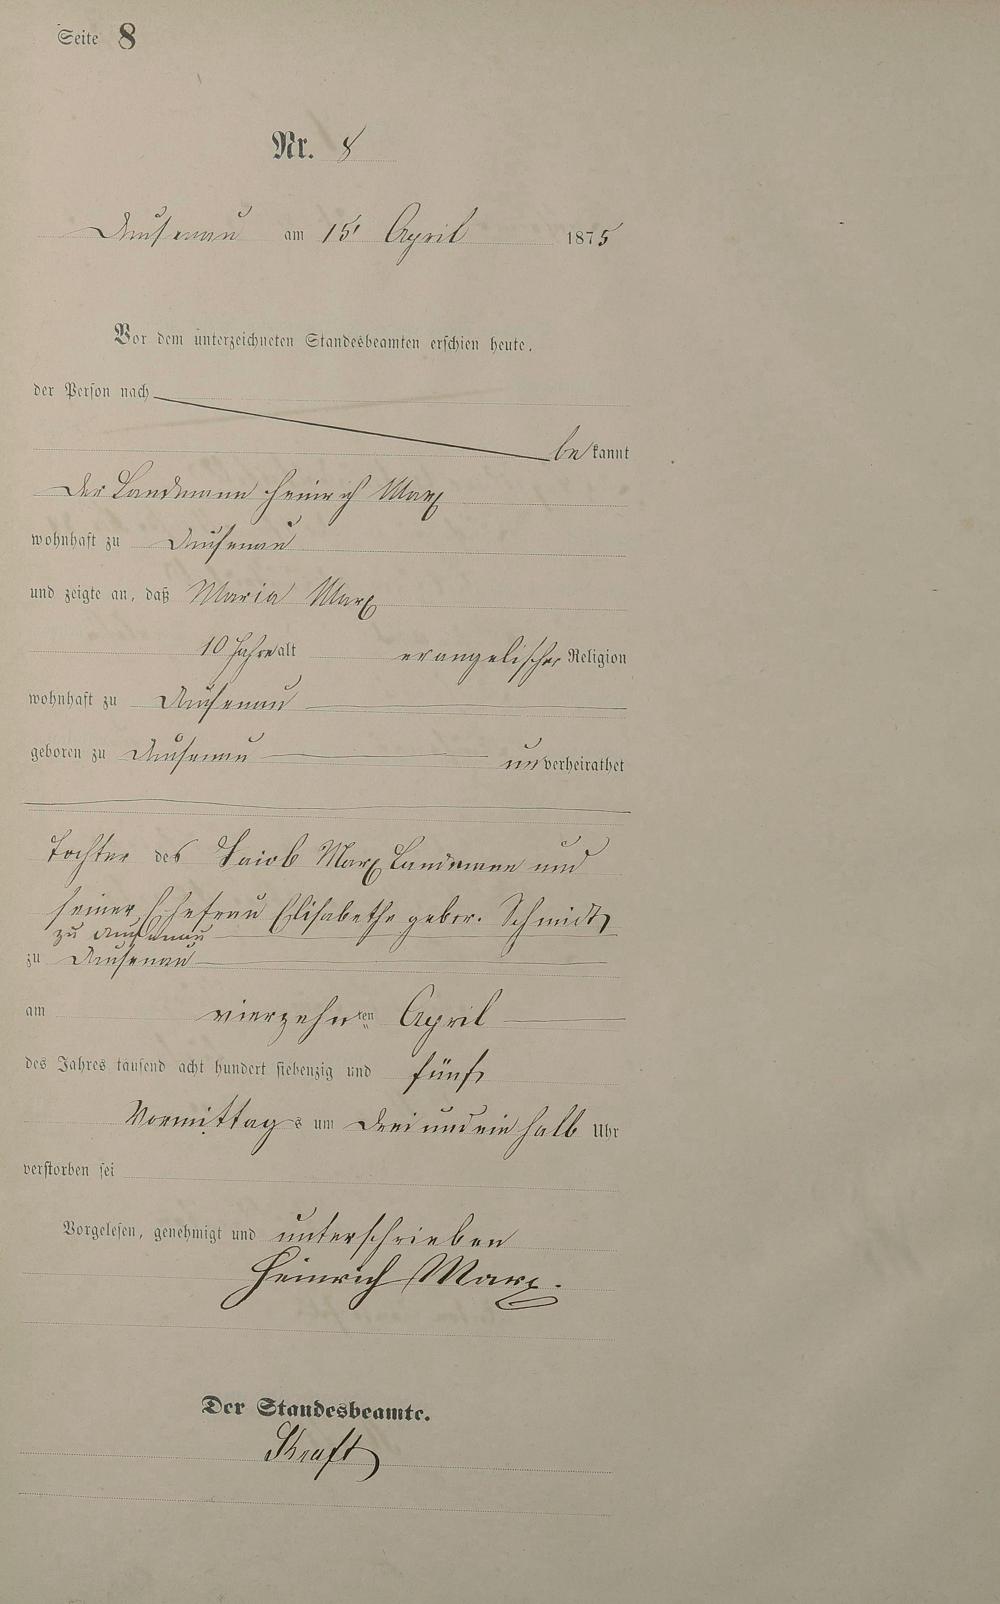 Seite 8
Nr. 8
Dausenau am 15t April 1875
Vor dem unterzeichneten Standesbeamten erschien heute,
der Person nach
bekannt
der Landmann Heinrich Marx
wohnhaft zu Dausenau
und zeigte an, daß Maria Marx
10 Jahre alt evangelischer Religion
wohnhaft zu Dausenau
geboren zu Dausenau unverheirathet
Tochter des Jacob Marx Landmann und
seiner Ehefrau Elisabethe gebor. Schmidt
zu Dausenau
zu Dausenau
am vierzehnten April
des Jahres tausend acht hundert siebenzig und fünf
Vormittags um drei und ein halb Uhr
verstorben sei
Vorgelesen, genehmigt und unterschrieben
Heinrich Marx.
Der Standesbeamte.
Kraft